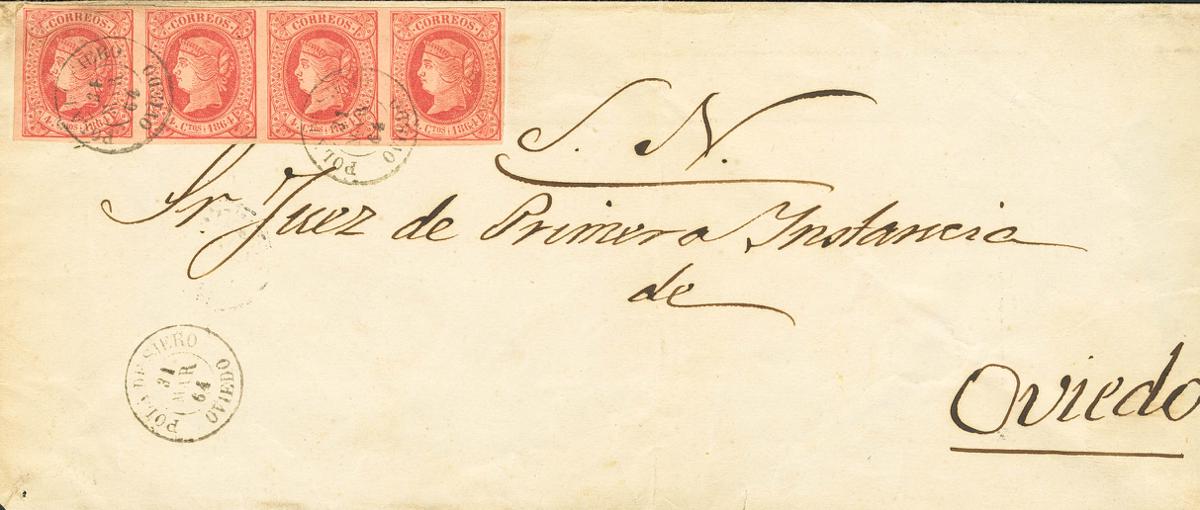 CORREOS CORREOS CORREOS CORREOS
4 CTOS 1864 4 CTOS 1864 4 CTOS 1864 4 CTOS 1864
POLA SIERO OVIEDO 64
POLA OVIEDO 31 64
S. N.
Sr. Juez de Primera Instancia
de
Oviedo
POLA DE SIERO
31
MAR
64
OVIEDO